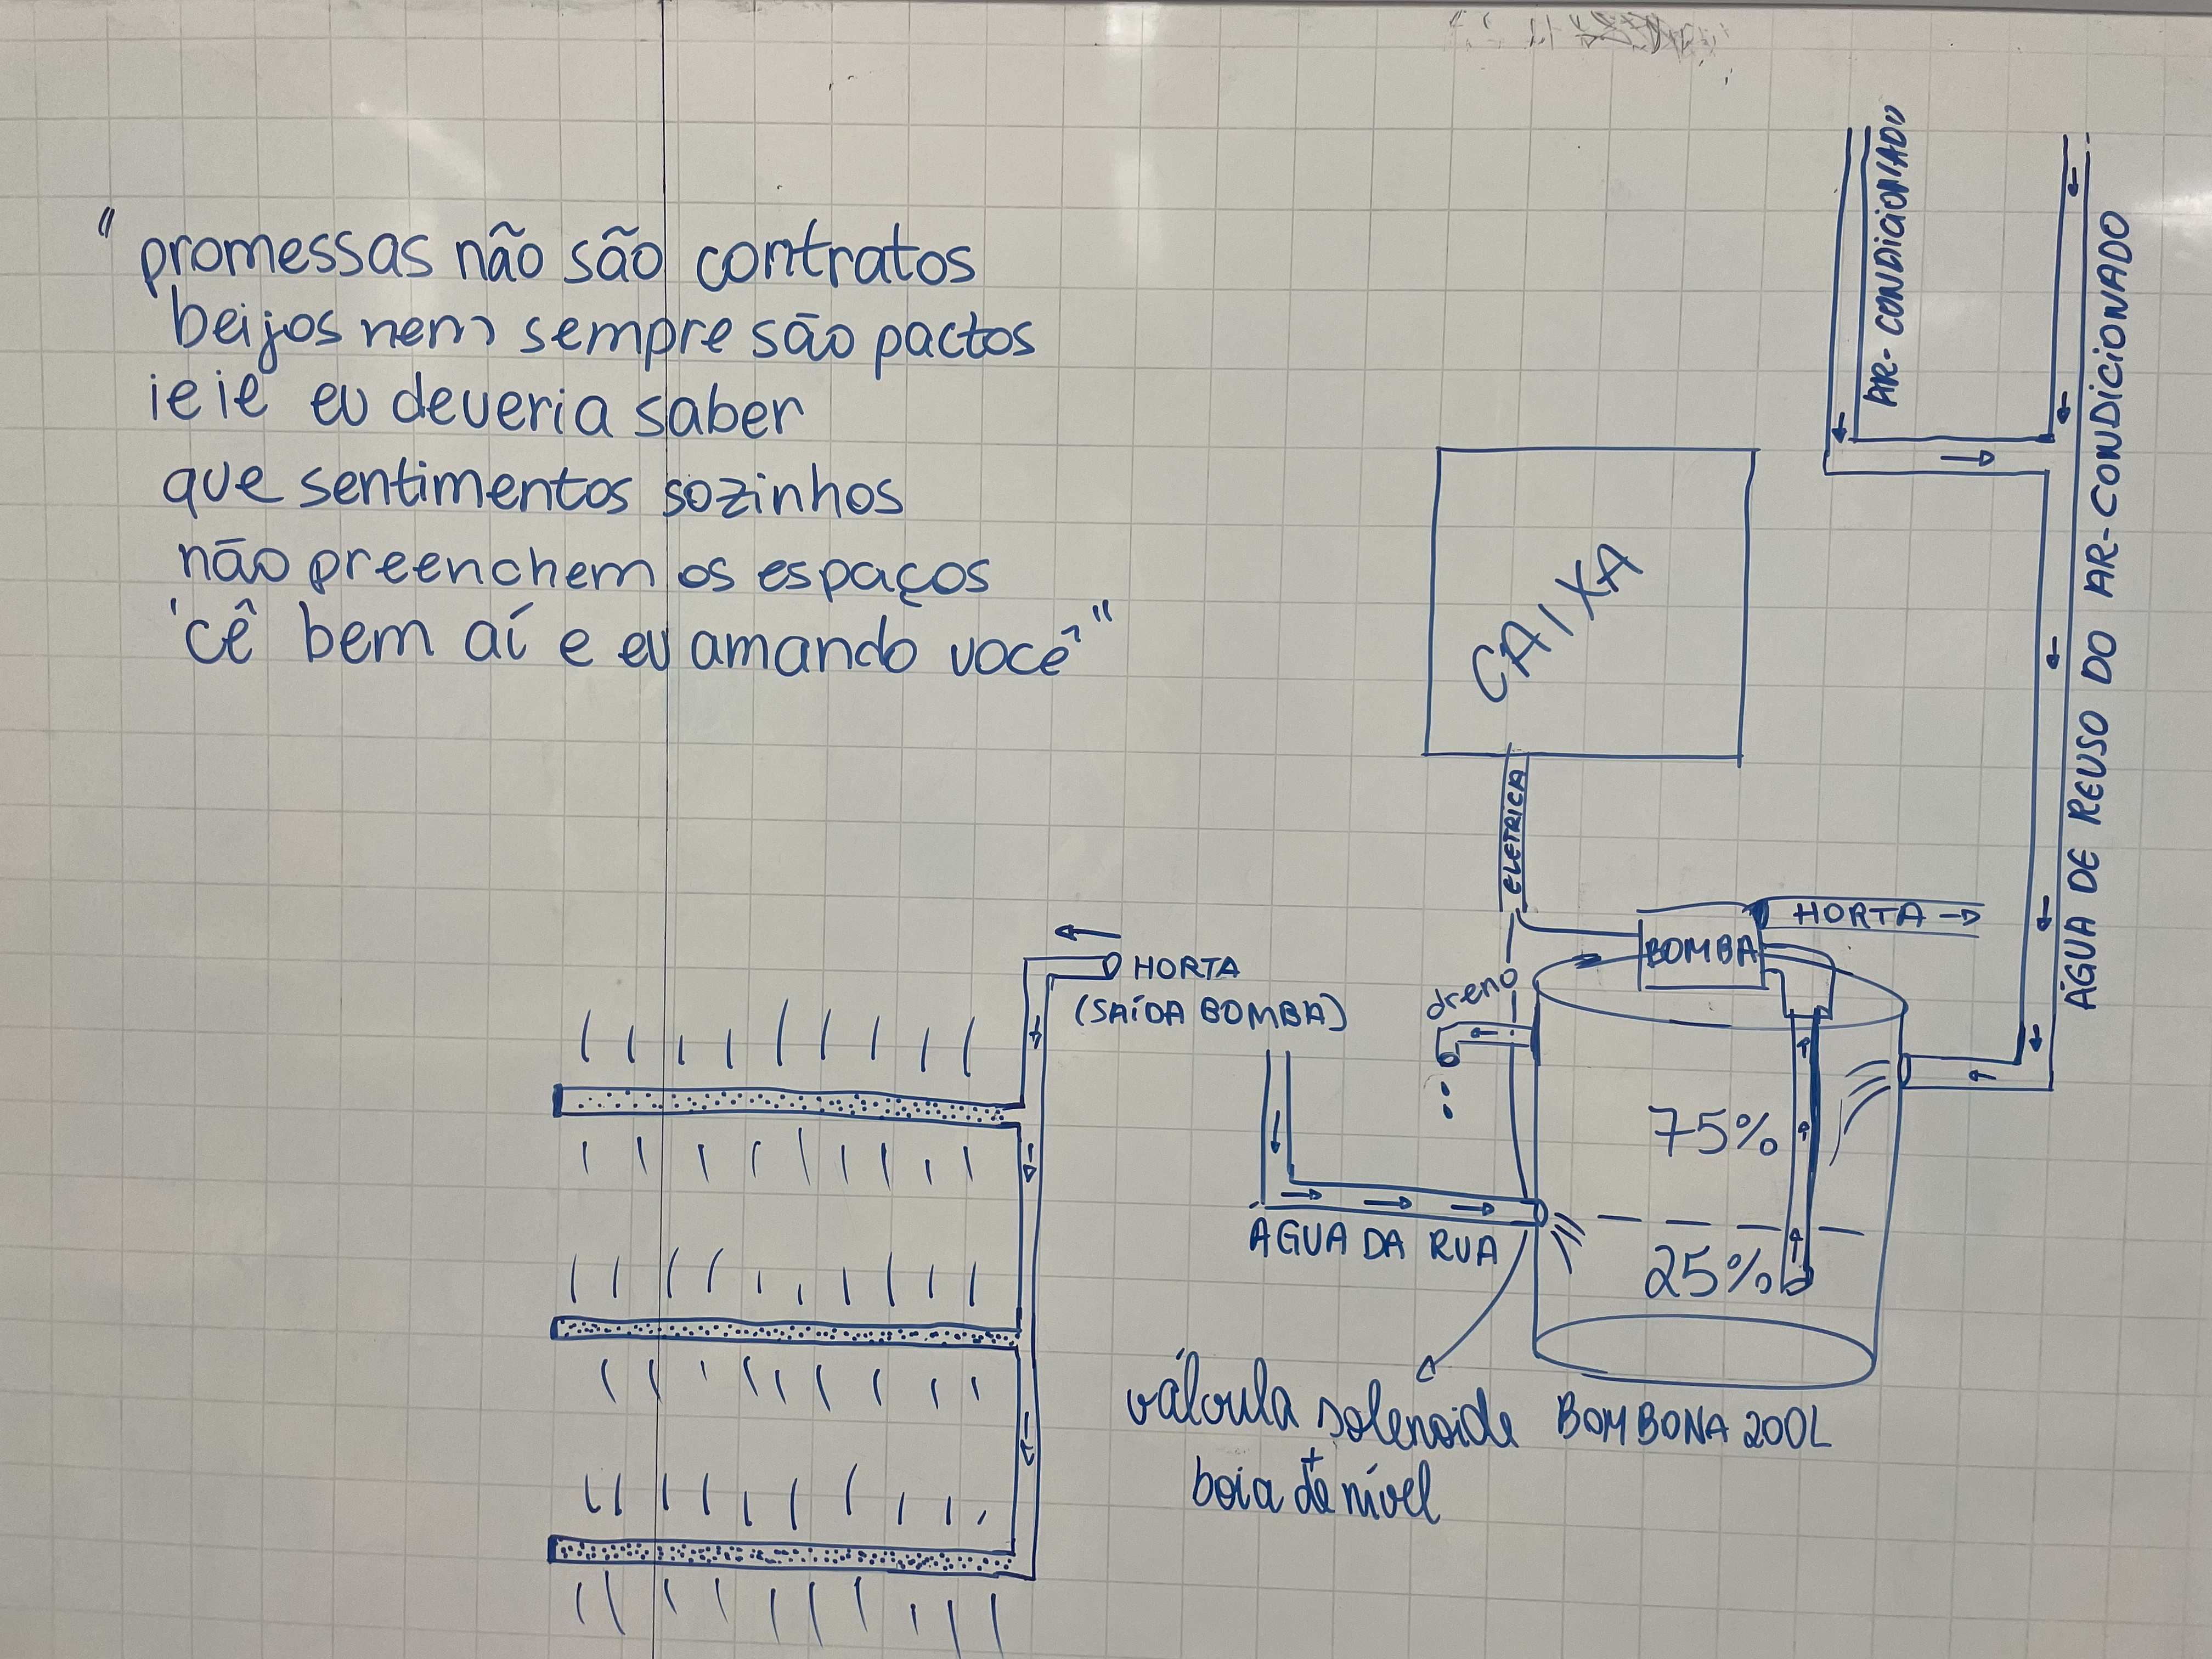 "promessas não são contratos
beijos nem sempre são pactos
ieie eu deveria saber
que sentimentos sozinhos
não preenchem os espaços
'cê bem aí e eu amando você"
AR-CONDICIONADO
ÁGUA DE REUSO DO AR-CONDICIONADO
CAIXA
ELETRICA
HORTA →
BOMBA
← 
HORTA
(SAÍDA BOMBA)
dreno
75%
25%
AGUA DA RUA
válvula solenoide
+
boia de nível
BOMBONA 200L